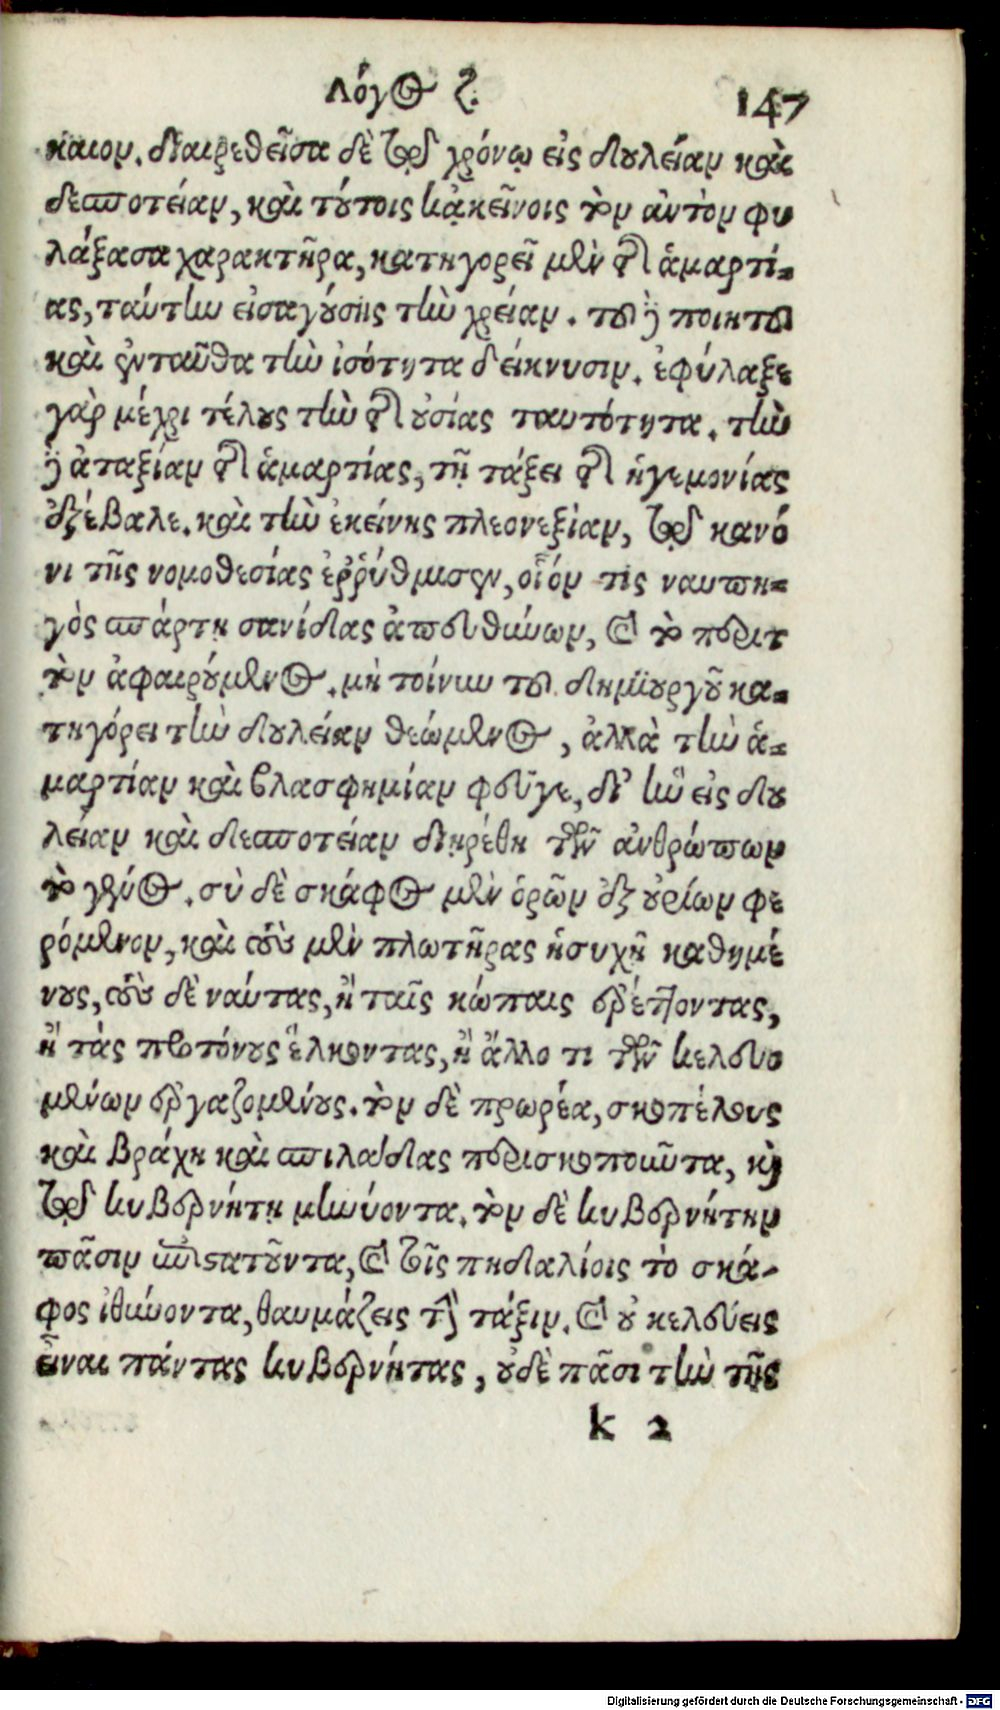 Λόγος ζ. 147
καιον. διαιρεθεῖσα δὲ τῷ χρόνῳ εἰς δουλείαν καὶ
δεσποτείαν, καὶ τούτοις κἀκείνοις τὸν αὐτὸν φυ
λάξασα χαρακτῆρα, κατηγορεῖ μὲν τῆς ἁμαρτί-
ας, ταύτην εἰσαγούσης τὴν χρείαν. τοῦ δὲ ποιητοῦ
καὶ ἐνταῦθα τὴν ἰσότητα δείκνυσιν. ἐφύλαξε
γὰρ μέχρι τέλους τὴν τῆς οὐσίας ταυτότητα. τὴν
δὲ ἀταξίαν τῆς ἁμαρτίας, τῇ τάξει τῆς ἡγεμονίας
ἐξέβαλε. καὶ τὴν ἐκείνης πλεονεξίαν, τῷ κανό
νι τῆς νομοθεσίας ἐῤῥύθμισεν, οἷόν τις ναυπη-
γὸς σπάρτῃ σανίδας ἀπευθύνων, καὶ τὸ περιτ
τὸν ἀφαιρούμενος. μὴ τοίνυν τοῦ δημιουργοῦ κα-
τηγόρει τὴν δουλείαν θεώμενος, ἀλλὰ τὴν ἁ-
μαρτίαν καὶ βλασφημίαν φεῦγε, δι' ἣν εἰς δου
λείαν καὶ δεσποτείαν διῃρέθη τῶν ἀνθρώπων
τὸ γένος. σὺ δὲ σκάφος μὲν ὁρῶν ἐξ οὐρίων φε
ρόμενον, καὶ τοὺς μὲν πλωτῆρας ἡσυχῆ καθημέ
νους, τοὺς δὲ ναύτας, ἢ ταῖς κώπαις ἐρέττοντας,
ἢ τὰς προτόνους ἕλκοντας, ἢ ἄλλο τι τῶν κελευο
μένων ἐργαζομένους. τὸν δὲ πρωρέα, σκοπέλους
καὶ βράχη καὶ σπιλάδας περισκοποῦντα, καὶ
τῷ κυβερνήτῃ μηνύοντα. τὸν δὲ κυβερνήτην
πᾶσιν ἐπιστατοῦντα, καὶ τοῖς πηδαλίοις τὸ σκά-
φος ἰθύνοντα, θαυμάζεις τὴν τάξιν. καὶ οὐ κελεύεις
εἶναι πάντας κυβερνήτας, οὐδὲ πᾶσι τὴν τῆς
k 2
Digitalisierung gefördert durch die Deutsche Forschungsgemeinschaft - DFG